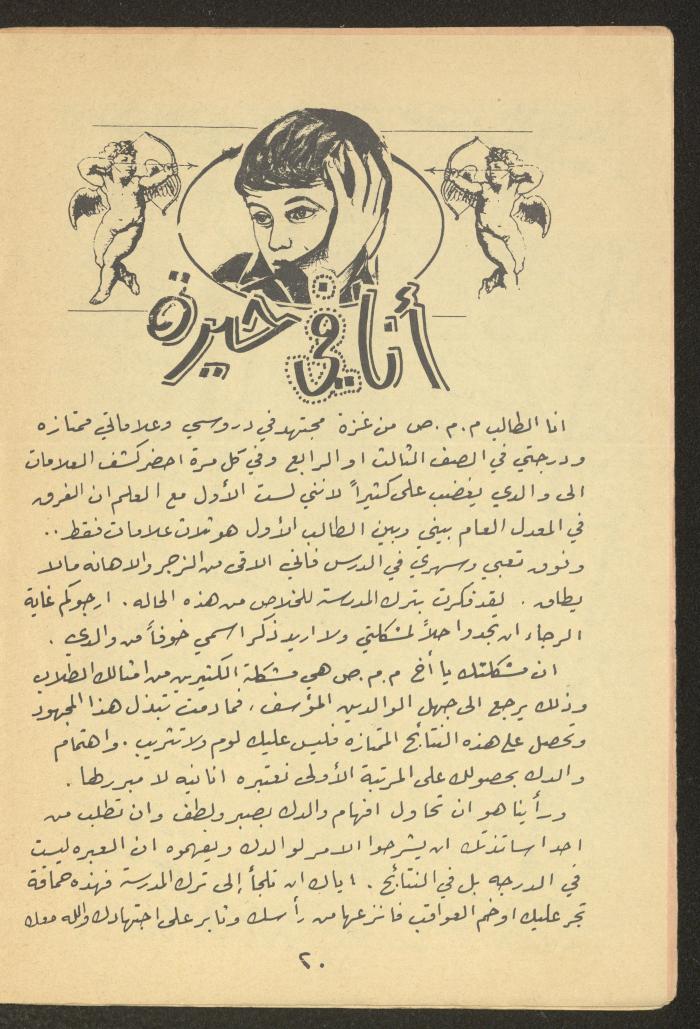 أنا في حيرة
انا الطالب م . م . ص من غزة مجتهد في دروسي وعلاماتي ممتازه
ودرجتي في الصف الثالث او الرابع وفي كل مرة احضر كشف العلامات
الى والدي يغضب علي كثيراً لانني لست الأول مع العلم ان الفرق
في المعدل العام بيني وبين الطالب الأول هو ثلاث علامات فقط ..
وفوق تعبي وسهري في الدرس فاني الاقي من الزجر والاهانه مالا
يطاق . لقد فكرت بترك المدرسة للخلاص من هذه الحاله . ارجوكم غاية
الرجاء ان تجدوا حلاً لمشكلتي ولا اريد ذكر اسمي خوفاً من والدي .
ان مشكلتك يا أخ م . م . ص هي مشكلة الكثيرين من امثالك الطلاب
وذلك يرجع الى جهل الوالدين المؤسف ، فما دمت تبذل هذا المجهود
وتحصل على هذه النتائج الممتازه فليس عليك لوم ولا تثريب . واهتمام
والدك بحصولك على المرتبة الأولى نعتبره انانيه لا مبرر لها .
ورأينا هو ان تحاول افهام والدك بصبر ولطف وان تطلب من
احد اساتذتك ان يشرحوا الامر لوالدك ويفهموه ان العبره ليست
في الدرجه بل في النتائج . اياك ان تلجأ إلى ترك المدرسة فهذه حماقة
تجر عليك اوخم العواقب فانزعها من رأسك وثابر على اجتهادك والله معك
٢٠